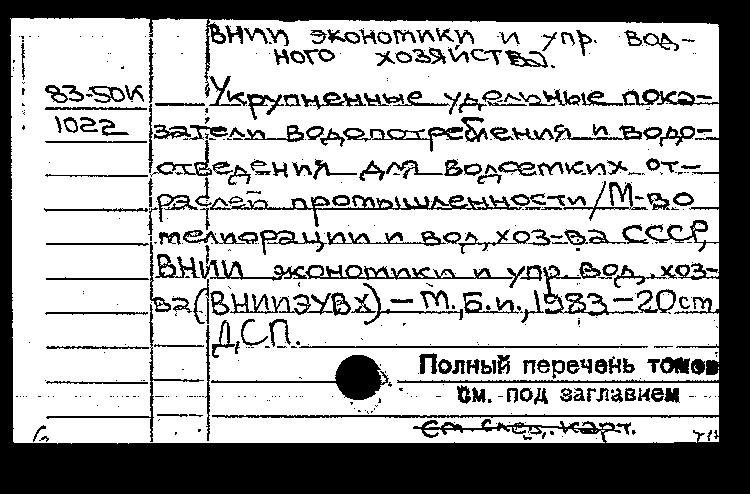 ВНИИ экономики и упр. вод-
ного хозяйства.
83-50К
1022
Укрупненные удельные пока-
затели водопотребления и водо-
отведения для водоемких от-
раслей промышленности/М-во
мелиорации и вод, хоз-ва СССР,
ВНИИ экономики и упр. вод, хоз-
ва (ВНИИЭУВХ).-М.,Б.и.,1983-20 ст.
Д,С.П.
Полный перечень томов
См. под заглавием
См. след, карт.